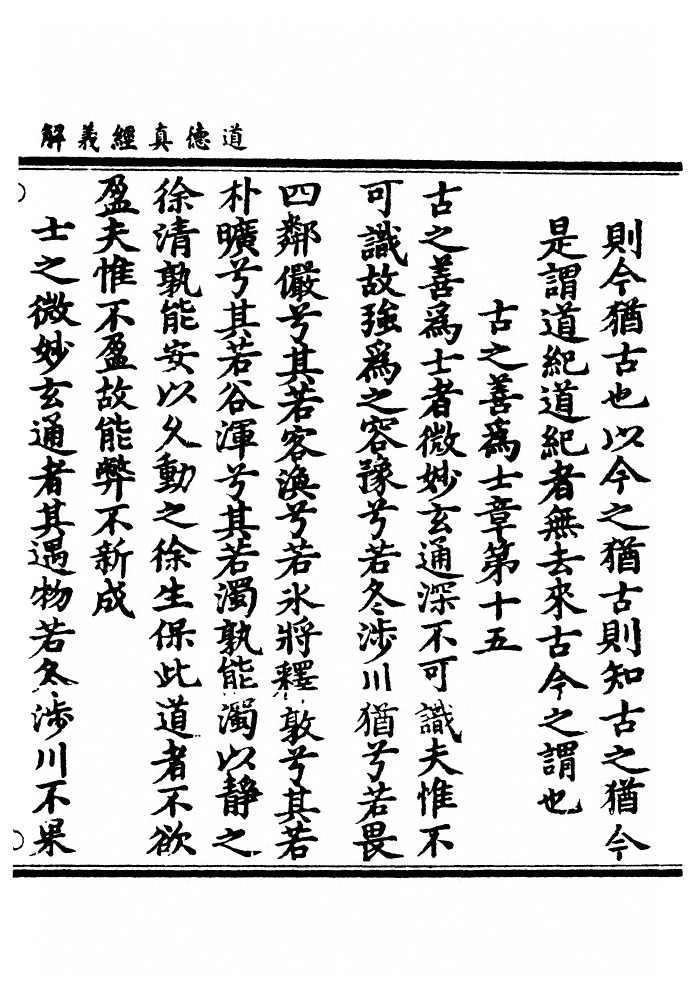 道德真經義解
則今猶古也以今之猶古則知古之猶今
是謂道紀道紀者無去來古今之謂也
古之善爲士章第十五
古之善爲士者微妙玄通深不可識夫惟不
可識故強爲之容豫兮若冬涉川猶兮若畏
四鄰儼兮其若客渙兮若氷將釋敦兮其若
朴曠兮其若谷渾兮其若濁孰能濁以靜之
徐清孰能安以久動之徐生保此道者不欲
盈夫惟不盈故能弊不新成
士之微妙玄通者其遇物若冬涉川不果